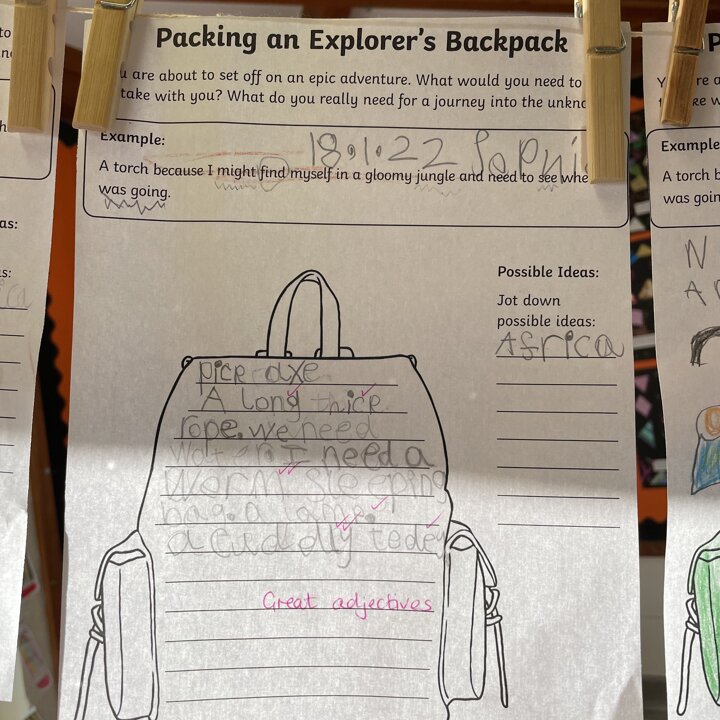 Packing an Explorer's Backpack
u are about to set off on an epic adventure. What would you need to
take with you? What do you really need for a journey into the unkno
Example:
18.1.22 Sophi
A torch because I might find myself in a gloomy jungle and need to see whe
was going.
Possible Ideas:
Jot down
possible ideas:
Africa
pick axe
A long thick
rope. we need
water. I need a
worm sleeping
bag. a lamp.
a cuddly tedey
Great adjectives
P
Example
A torch b
was goin
as: